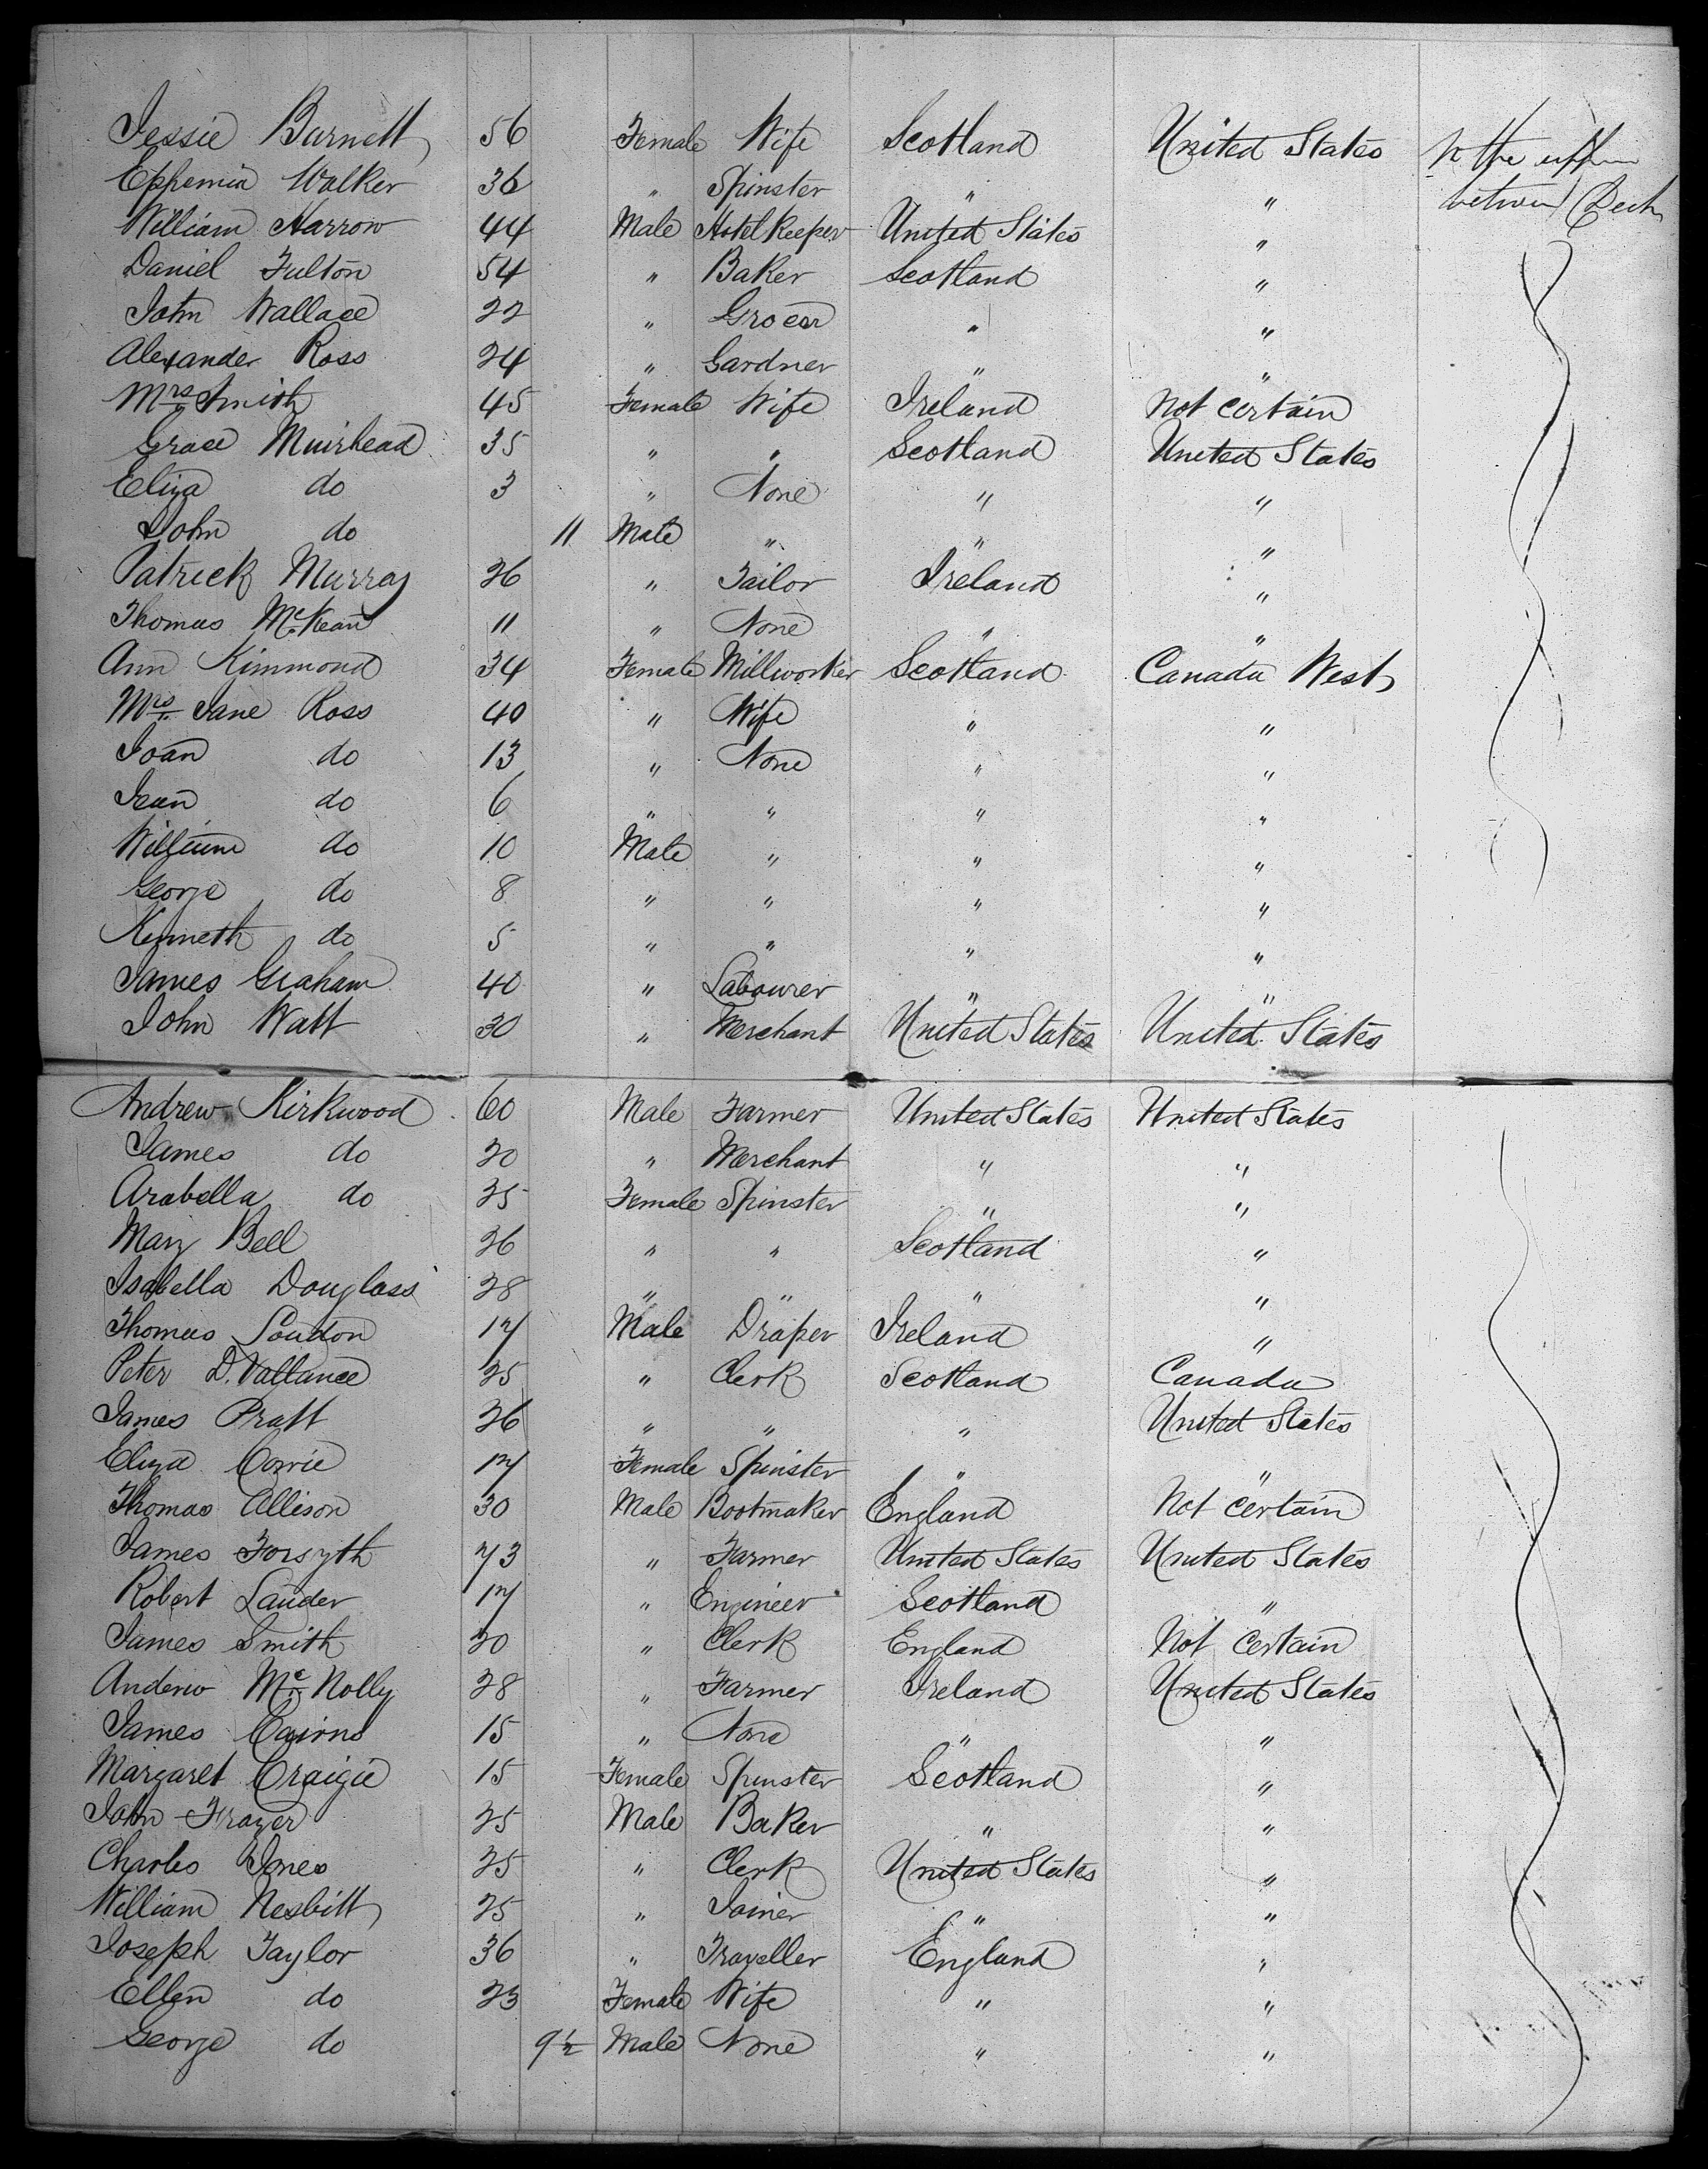 Jessie Barnett 56 Female Wife Scotland United States In the upper
Ephemia Walker 36 " Spinster " " between Deck
William Harrow 44 Male Hotel Keeper United States "
Daniel Fulton 54 " Baker Scotland "
John Wallace 22 " Grocer " "
Alexander Ross 24 " Gardner " "
Mrs Smith 45 Female Wife Ireland Not Certain
Grace Muirhead 35 " " Scotland United States
Eliza do 3 " None " "
John do 11 Male " " "
Patrick Murray 26 " Tailor Ireland "
Thomas McKean 11 " None " "
Ann Kimmond 34 Female Millworker Scotland Canada West
Mrs Jane Ross 40 " Wife " "
Joan do 13 " None " "
Jean do 6 " " " "
William do 10 Male " " "
George do 8 " " " "
Kenneth do 5 " " " "
James Graham 40 " Labourer " "
John Watt 30 " Merchant United States United States
Andrew Kirkwood 60 Male Farmer United States United States
James do 20 " Merchant " "
Arabella do 25 Female Spinster " "
Mary Bell 26 " " Scotland "
Isabella Douglass 28 " " " "
Thomas Loudon 17 Male Draper Ireland "
Peter D. Vallance 25 " Clerk Scotland Canada
James Pratt 26 " " " United States
Eliza Cowie 17 Female Spinster " "
Thomas Allison 30 Male Bootmaker England Not Certain
James Forsyth 73 " Farmer United States United States
Robert Lauder 17 " Engineer Scotland "
James Smith 20 " Clerk England Not Certain
Anderw McNolly 28 " Farmer Ireland United States
James Cairns 15 " None " "
Margaret Craigie 15 Female Spinster Scotland "
John Frazer 25 Male Baker " "
Charles Jones 25 " Clerk United States "
William Nesbitt 25 " Joiner " "
Joseph Taylor 36 " Traveller England "
Ellen do 23 Female Wife " "
George do 9½ Male None " "